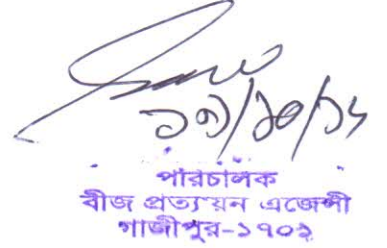 ১৭/১০/১৮
পরিচালক
বীজ প্রত্যয়ন এজেন্সী
গাজীপুর-১৭০১